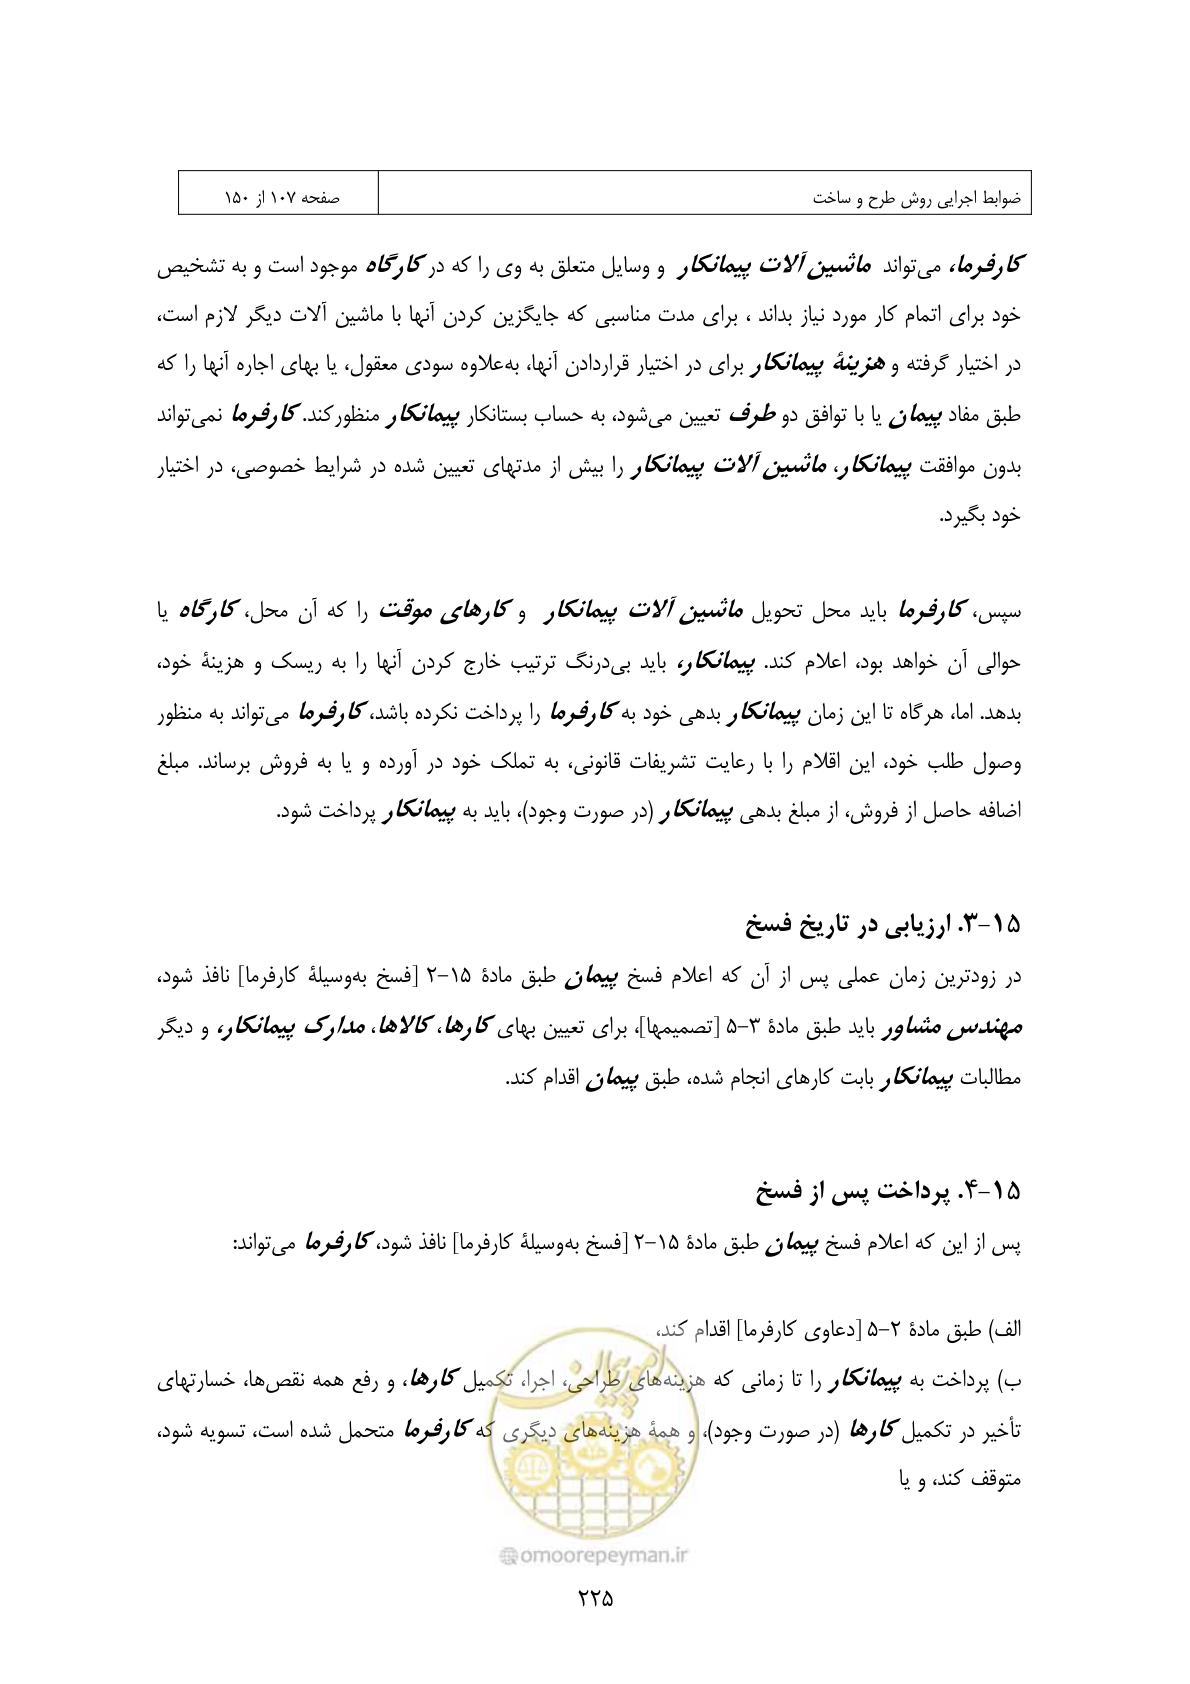 ضوابط اجرایی روش طرح و ساخت
صفحه ۱۰۷ از ۱۵۰
کارفرما، می‌تواند ماشین آلات پیمانکار و وسایل متعلق به وی را که در کارگاه موجود است و به تشخیص
خود برای اتمام کار مورد نیاز بداند ، برای مدت مناسبی که جایگزین کردن آنها با ماشین آلات دیگر لازم است،
در اختیار گرفته و هزینهٔ پیمانکار برای در اختیار قراردادن آنها، به‌علاوه سودی معقول، یا بهای اجاره آنها را که
طبق مفاد پیمان یا با توافق دو طرف تعیین می‌شود، به حساب بستانکار پیمانکار منظورکند. کارفرما نمی‌تواند
بدون موافقت پیمانکار، ماشین آلات پیمانکار را بیش از مدتهای تعیین شده در شرایط خصوصی، در اختیار
خود بگیرد.
سپس، کارفرما باید محل تحویل ماشین آلات پیمانکار و کارهای موقت را که آن محل، کارگاه یا
حوالی آن خواهد بود، اعلام کند. پیمانکار، باید بی‌درنگ ترتیب خارج کردن آنها را به ریسک و هزینهٔ خود،
بدهد. اما، هرگاه تا این زمان پیمانکار بدهی خود به کارفرما را پرداخت نکرده باشد، کارفرما می‌تواند به منظور
وصول طلب خود، این اقلام را با رعایت تشریفات قانونی، به تملک خود در آورده و یا به فروش برساند. مبلغ
اضافه حاصل از فروش، از مبلغ بدهی پیمانکار (در صورت وجود)، باید به پیمانکار پرداخت شود.
۳-۱۵. ارزیابی در تاریخ فسخ
در زودترین زمان عملی پس از آن که اعلام فسخ پیمان طبق مادهٔ ۱۵-۲ [فسخ به‌وسیلهٔ کارفرما] نافذ شود،
مهندس مشاور باید طبق مادهٔ ۳-۵ [تصمیمها]، برای تعیین بهای کارها، کالاها، مدارک پیمانکار، و دیگر
مطالبات پیمانکار بابت کارهای انجام شده، طبق پیمان اقدام کند.
۴-۱۵. پرداخت پس از فسخ
پس از این که اعلام فسخ پیمان طبق مادهٔ ۱۵-۲ [فسخ به‌وسیلهٔ کارفرما] نافذ شود، کارفرما می‌تواند:
الف) طبق مادهٔ ۲-۵ [دعاوی کارفرما] اقدام کند،
ب) پرداخت به پیمانکار را تا زمانی که هزینه‌های طراحی، اجرا، تکمیل کارها، و رفع همه نقص‌ها، خسارتهای
تأخیر در تکمیل کارها (در صورت وجود)، و همهٔ هزینه‌های دیگری که کارفرما متحمل شده است، تسویه شود،
متوقف کند، و یا
امور پیمان
@omoorepeyman.ir
۲۲۵